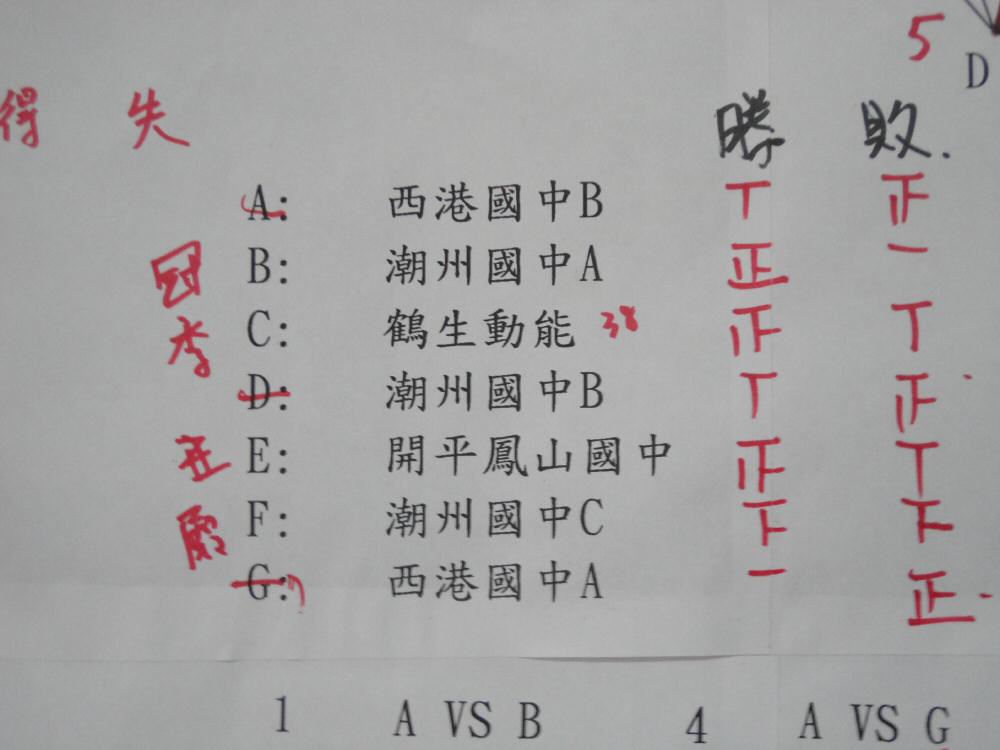 5
D
得 失 勝 敗.
A: 西港國中B 丅 正
冠 B: 潮州國中A 正 一
季 C: 鶴生動能 38 正 丅
D: 潮州國中B 丅 正
亚 E: 開平鳳山國中 正 丅
殿 F: 潮州國中C 下 下
G: 西港國中A 一 正
1 A VS B 4 A VS G